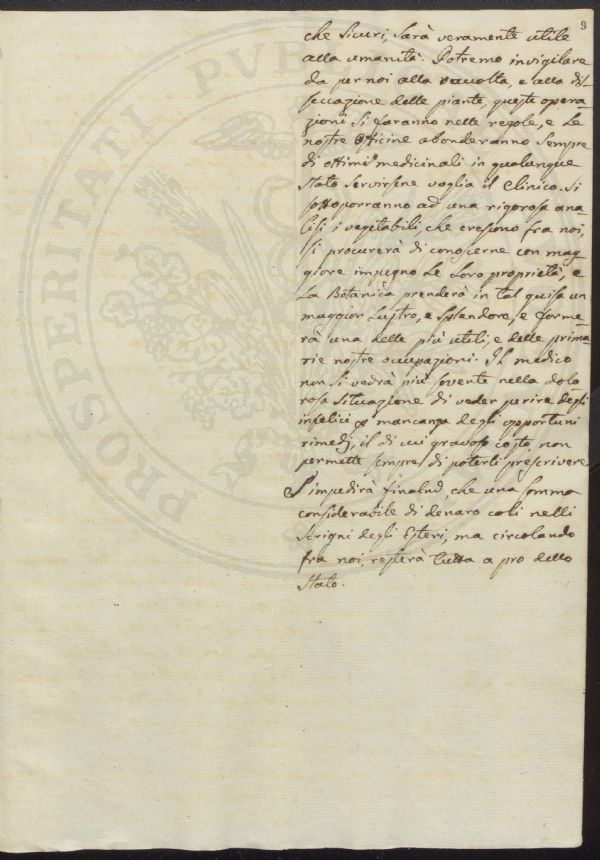 9
che sicuri, sarà veramente utile
alla umanità. Potremo invigilare
da per noi alla raccolta, e alla dis
seccazione delle piante, queste opera-
zioni si faranno nelle regole, e le
nostre officine abonderanno sempre
di ottimi medicinali in qualunque
stato servirsene voglia il Clinico. Si
sottoporranno ad una rigorosa ana-
lisi i vegetabili, che crescono fra noi,
si procurerà di conoscerne con mag-
giore impegno le loro proprietà, e
la Botanica prenderà in tal guisa un
maggior lustro, e splendore, e forme-
rà una delle più utili, e delle prima-
rie nostre occupazioni. Il medico
non si vedrà più sovente nella dolo
rosa situazione di veder perire degli
infelici p mancanza degli opportuni
rimedj, il di cui gravoso costo non
permette sempre di poterli prescrivere
S'impedirà finalmd, che una somma
considerabile di denaro coli nelli
scrigni degli Esteri, ma circolando
fra noi, resterà tutta a pro dello
Stato.
PROSPERITATI PVB